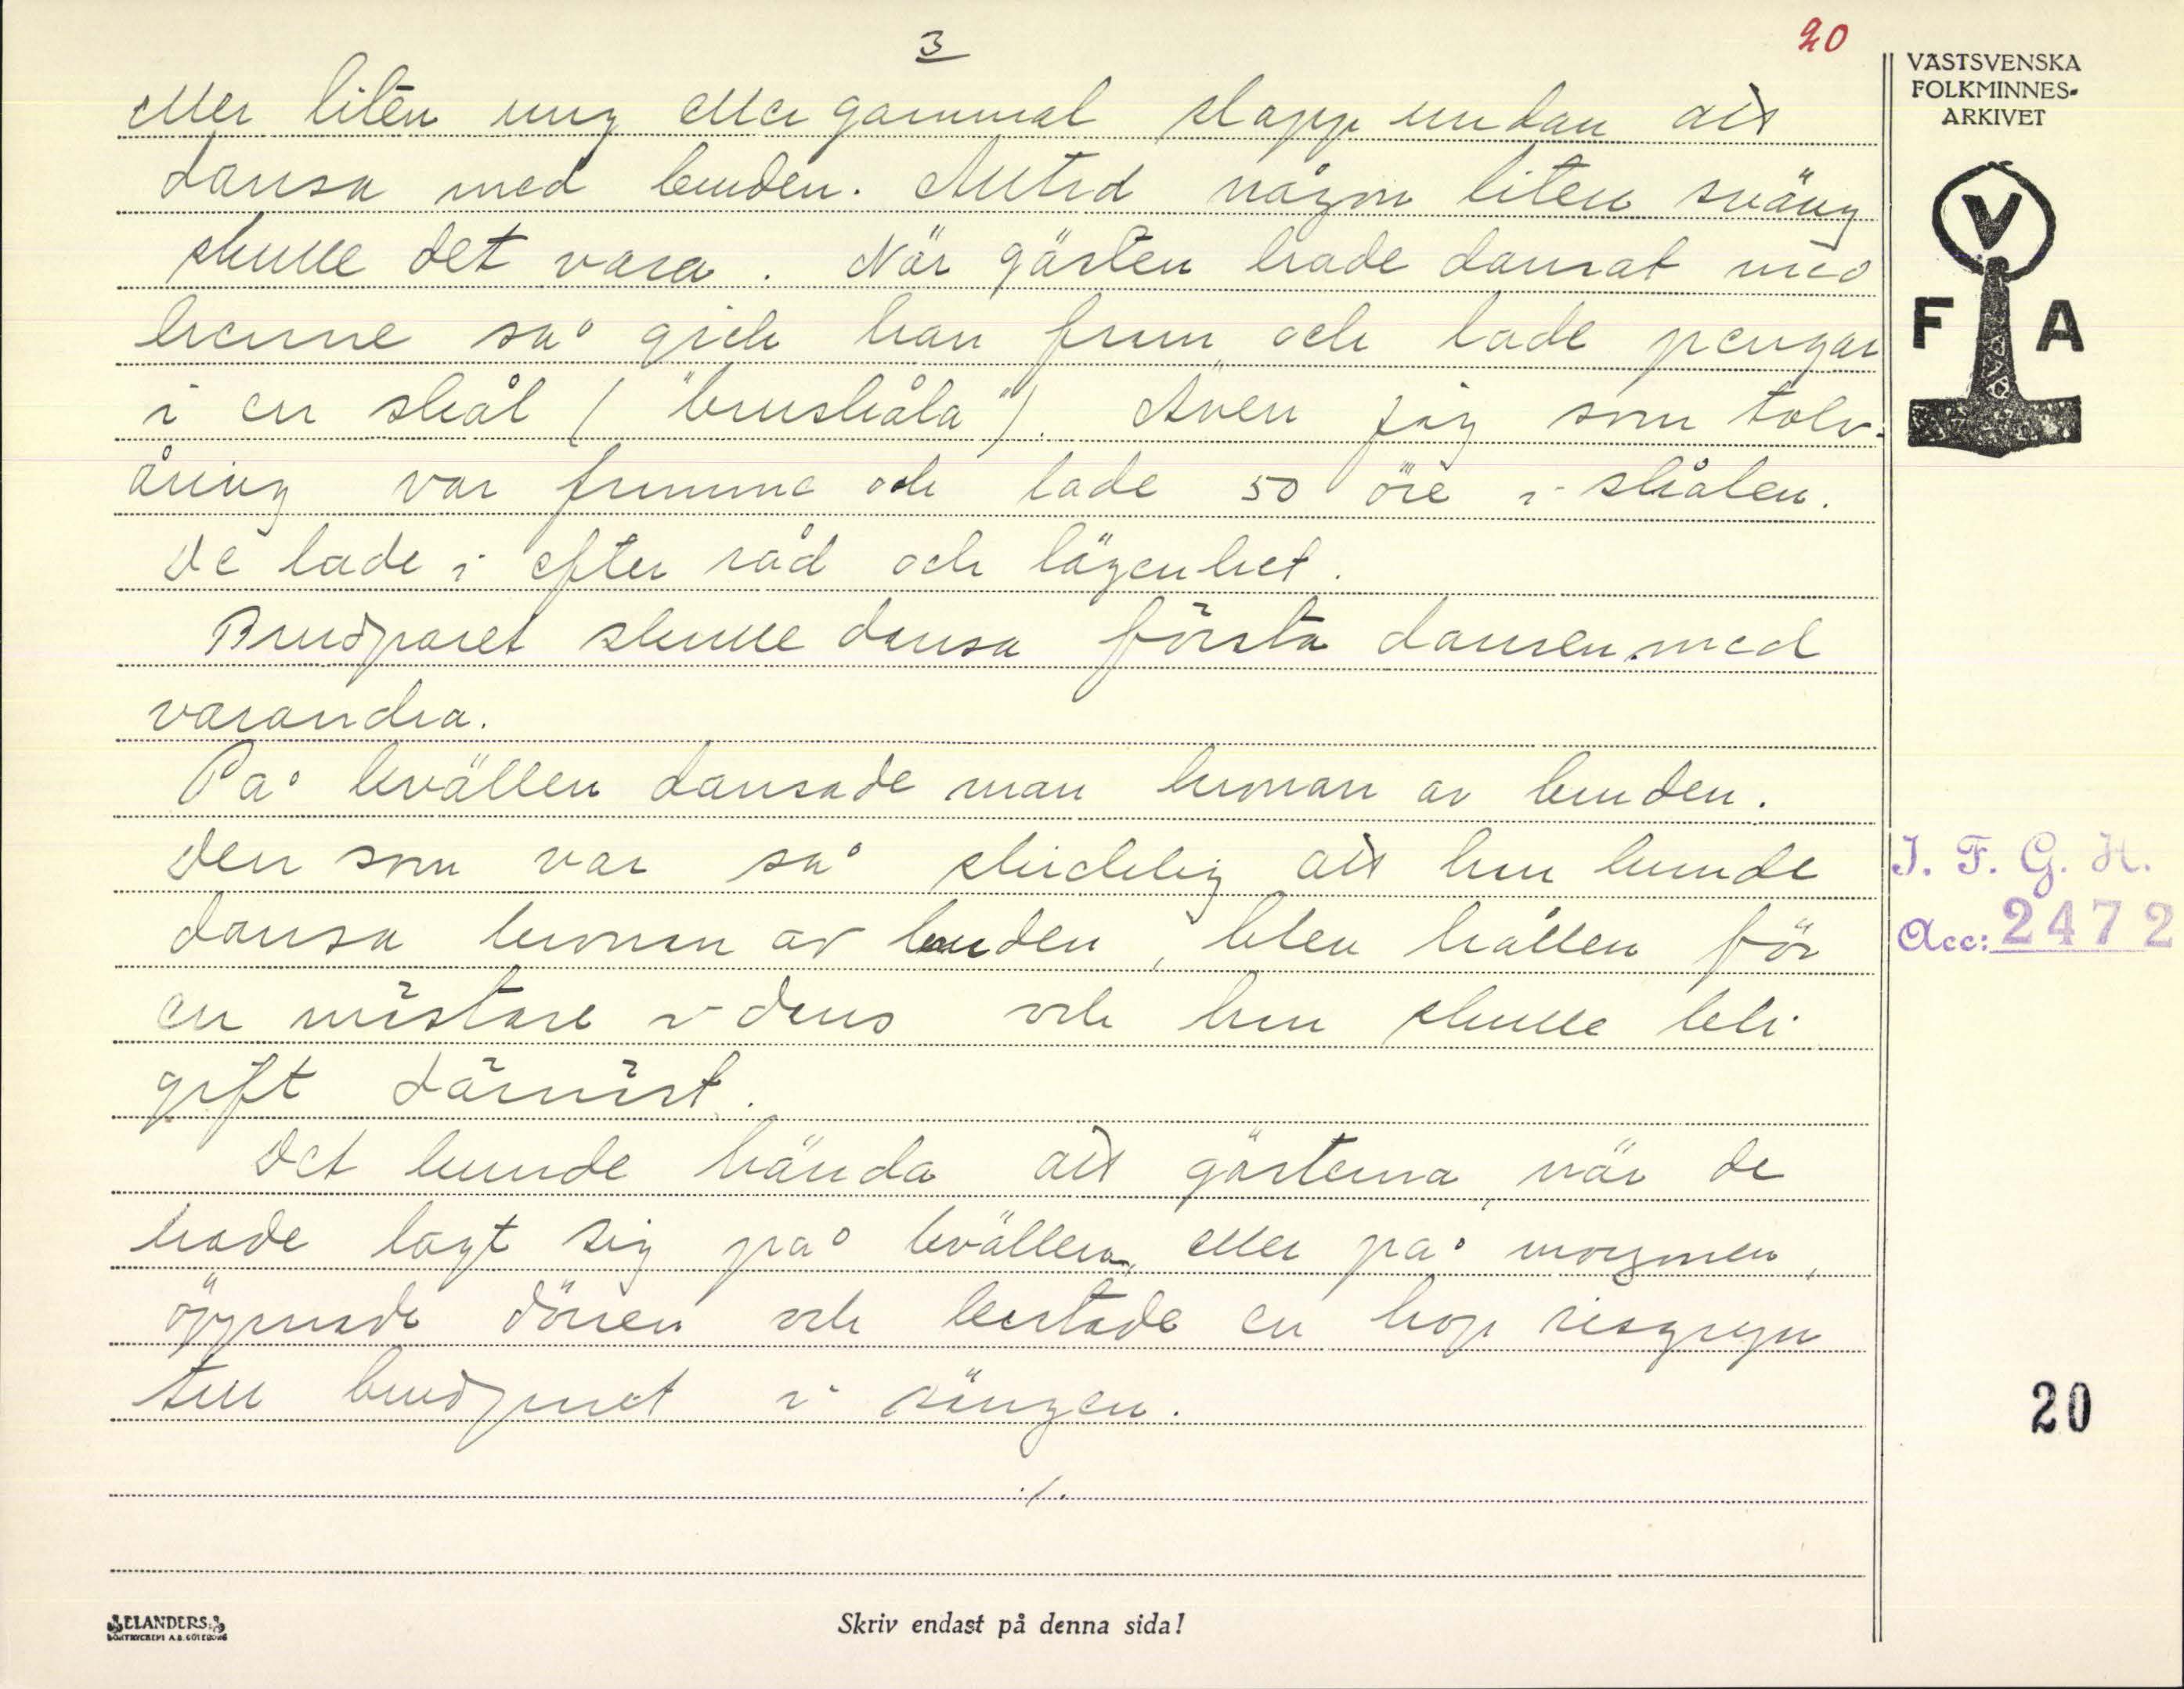 3
20
eller liten ung eller gammal slapp undan att
dansa med bruden. Alltid någon liten sväng
skulle det vara. När gästen hade dansat med
henne så gick han fram och lade pengar
i en skål ("bruskåla"). Även jag som tolv-
åring var framme och lade 50 öre i skålen.
De lade i efter råd och lägenhet.
Brudparet skulle dansa första dansen med
varandra.
På kvällen dansade man kronan av bruden.
Den som var så skicklig att hon kunde
dansa kronan av bruden, blev hållen för
en mästare i dans och hon skulle bli
gift därnäst.
Det kunde hända att gästerna, när de
hade lagt sig på kvällen, eller på morgonen,
öppnade dörren och kastade en hop risgryn
till brudparet i sängen.
./.
VÄSTSVENSKA
FOLKMINNES-
ARKIVET
V
F A
I. F. G. H.
Acc: 2472
20
ELANDERS
BOKTRYCKERI A.B. GÖTEBORG
Skriv endast på denna sida!